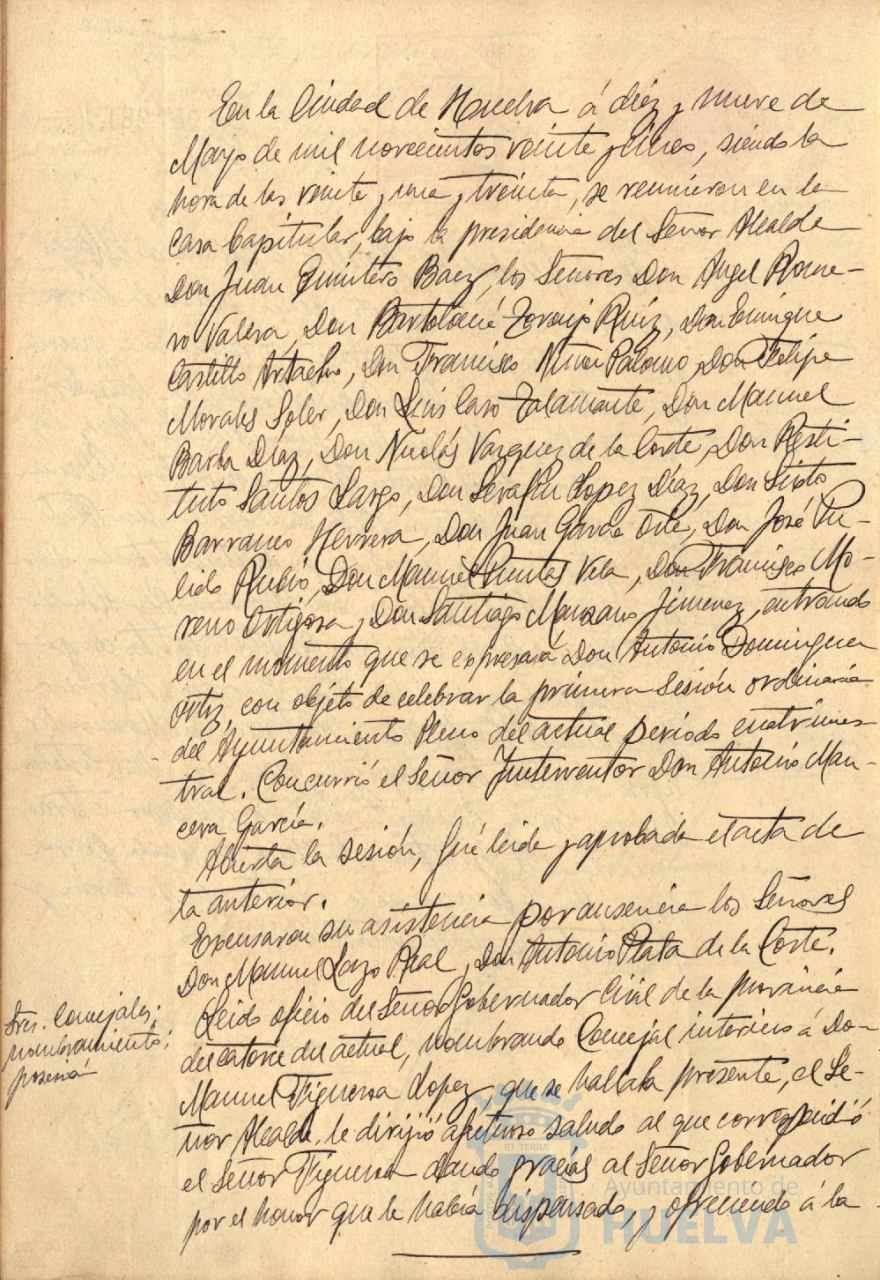 En la Ciudad de Huelva á diez y nueve de
Mayo de mil novecientos veinte y cinco, siendo la
hora de las veinte y una y treinta, se reunieron en la
Casa Capitular, bajo la presidencia del Señor Alcalde
Don Juan Quintero Baez, los Señores Don Angel Rome-
ro Valera, Don Bartolomé Toronjo Ruiz, Don Enrique
Castillo Artacho, Don Francisco Palomo, Don Felipe
Morales Soler, Don Luis Caso Talamante, Don Manuel
Barba Díaz, Don Nicolás Vazquez de la Corte, Don Resti-
tuto Santos Largo, Don Serafín Lopez Díaz, Don Sixto
Barranco Herrera, Don Juan García Orte, Don José Pu-
lido Rubio, Don Manuel Vela, Don Francisco Mo-
reno Ortigosa y Don Santiago Manzano Jimenez, entrando
en el momento que se expresará Don Antonio Dominguez
Ortiz, con objeto de celebrar la primera sesión ordinaria
del Ayuntamiento Pleno del actual período cuatrimes-
tral. Concurrió el Señor Interventor Don Antonio Man-
cera García.
Abierta la sesión, fué leida y aprobada el acta de
la anterior.
Excusaron su asistencia por ausencia los Señores
Don Manuel Lazo Real y Don Antonio Plata de la Corte.
Sres. Concejales;
nombramiento;
posesión
Leido oficio del Señor Gobernador Civil de la provincia
del catorce del actual, nombrando Concejal interino á Don
Manuel Figueroa Lopez, que se hallaba presente, el Se-
ñor Alcalde le dirijió afectuoso saludo al que correspondió
el Señor Figueroa dando gracias al Señor Gobernador
por el honor que le habia dispensado, y ofreciendo á la
Ayuntamiento de
HUELVA